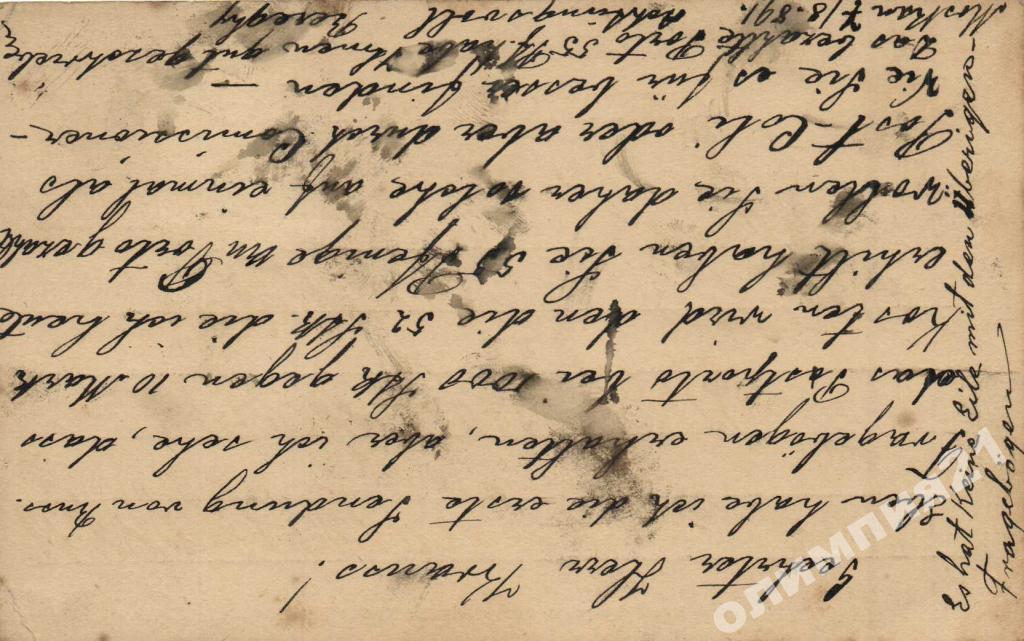 Geehrter Herr Krauss!
Eben habe ich die erste Sendung von Russ.
Fragebögen erhalten, aber ich sehe, dass
das Postporto bei 1000 Stk gegen 10 Mark
kosten wird den die 52 Stk. die ich heute
erhilt haben Sie 55 Pfenige an Porto gezahlt
wollen Sie daher solche auf einmal als
Post-Coli oder aber durch Comissioner—
wie Sie es für besser finden —
Das bezahlte Porto 55 Pf. habe Ihnen gut geschrieben
Achtungsvoll
Moskau 7/8. 891.
Es hat keine Eile mit den übrigen—
Fragebögen—
олимпия21